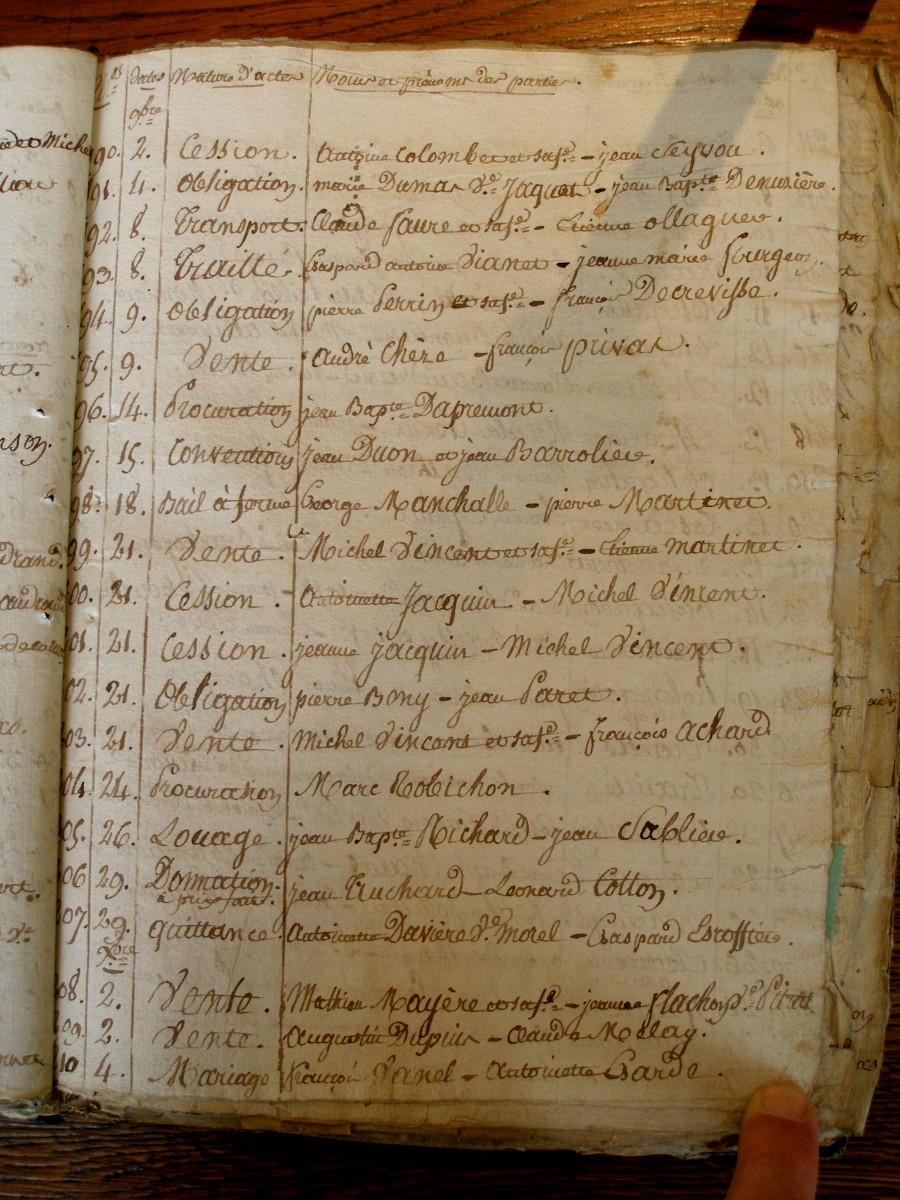 n.os dates Nature d'actes Noms et prénoms des parties.
9bre
90. 2. Cession. Antoine Colombet et sa fe. - jean Seyvou.
91. 4. Obligation. marie Dumas Ve. Jaquet - jean Bapte. Demurière.
92. 8. Transport. Claude faure et sa fe. - Etienne ollagnier.
93. 8. Traitté. Gaspard antoine Vianet - jeanne marie fourgeon.
94. 9. Obligation pierre Perrin et sa fe. - françois Decrevisse.
95. 9. Vente. André Chère - françois privat.
96. 14. Procuration jean Bapte. Dapremont.
97. 15. Conventions jean Duon et jean Barrolier.
98. 18. Bail à ferme George Manchalle - pierre Martinet.
99. 21. Vente. Michel Vincent et sa fe. - Etienne martinet.
00. 21. Cession. Antoinette Jacquin - Michel Vincent.
01. 21. Cession. jeanne jacquin - Michel Vincent.
02. 21. Obligation pierre Bony - jean Paret.
03. 21. Vente. Michel Vincent et sa fe. - françois Achard
04. 24. Procuration Marc Robichon.
05. 26. Louage. jean Bapte. Richard - jean Sablière.
06 29. Donnation. jean Truchard - Leonard Cotton.
à prix fait.
07. 29. quittance. Antoinette Davière Ve. Morel - Gaspard Escoffier.
Xbre
08. 2. Vente. Mathieu Mayère et sa fe. - jeanne flachon Ve.
09. 2. Vente. Augustin Dupuis - Claude Melay.
10 4. Mariage françois Vanel - Antoinette Garde.